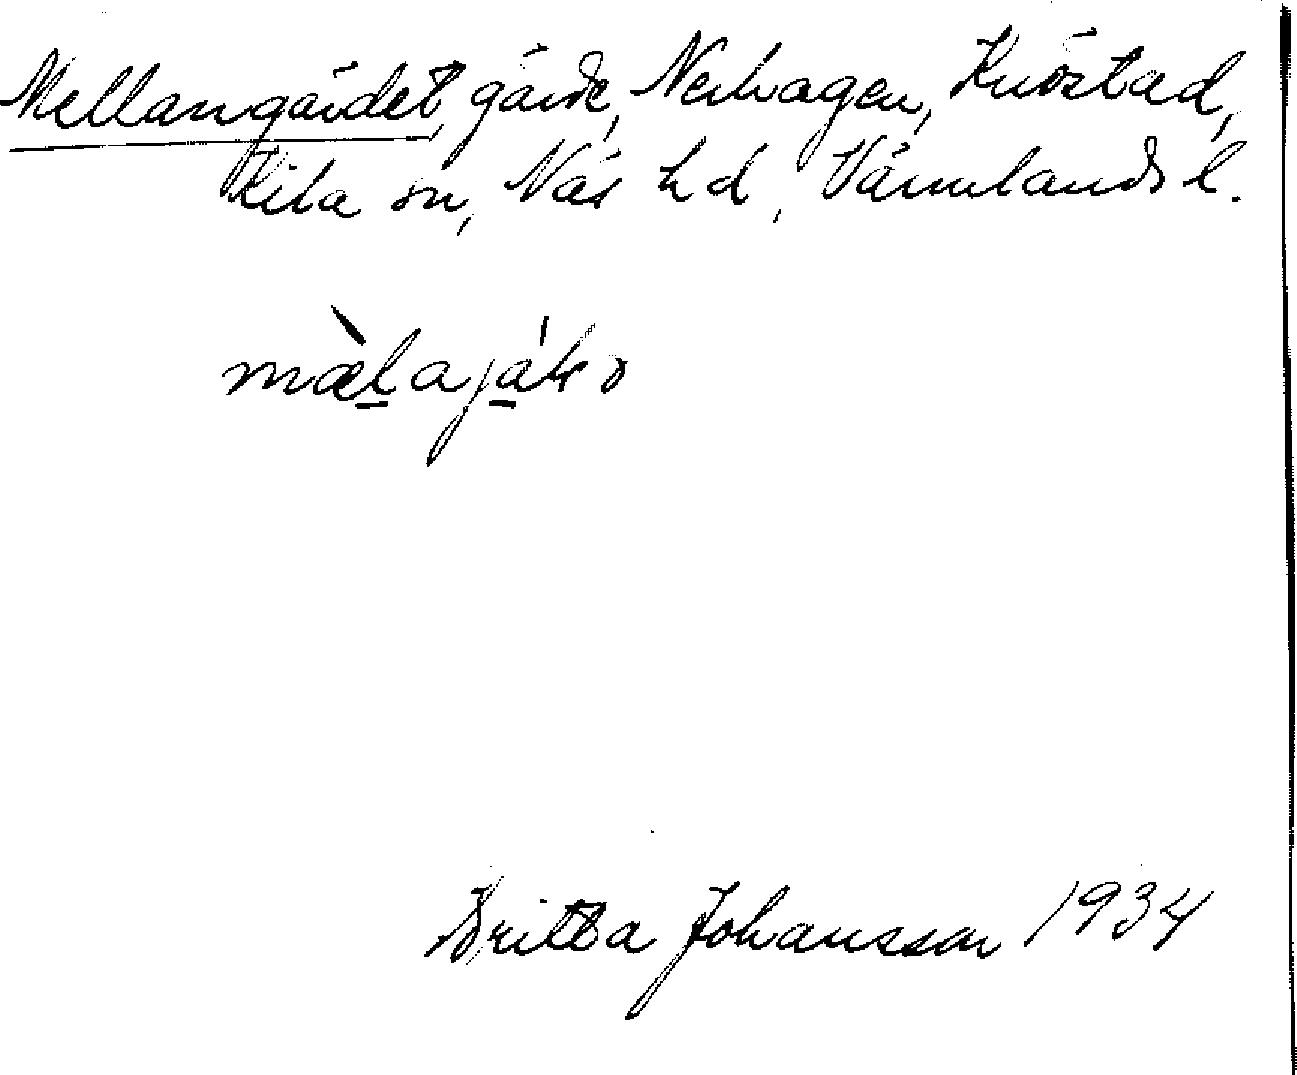 Mellangärdet, gärde, Nerhagen, Knöstad,
Kila sn, Näs hd, Värmlands l.
Britta Johansson 1934